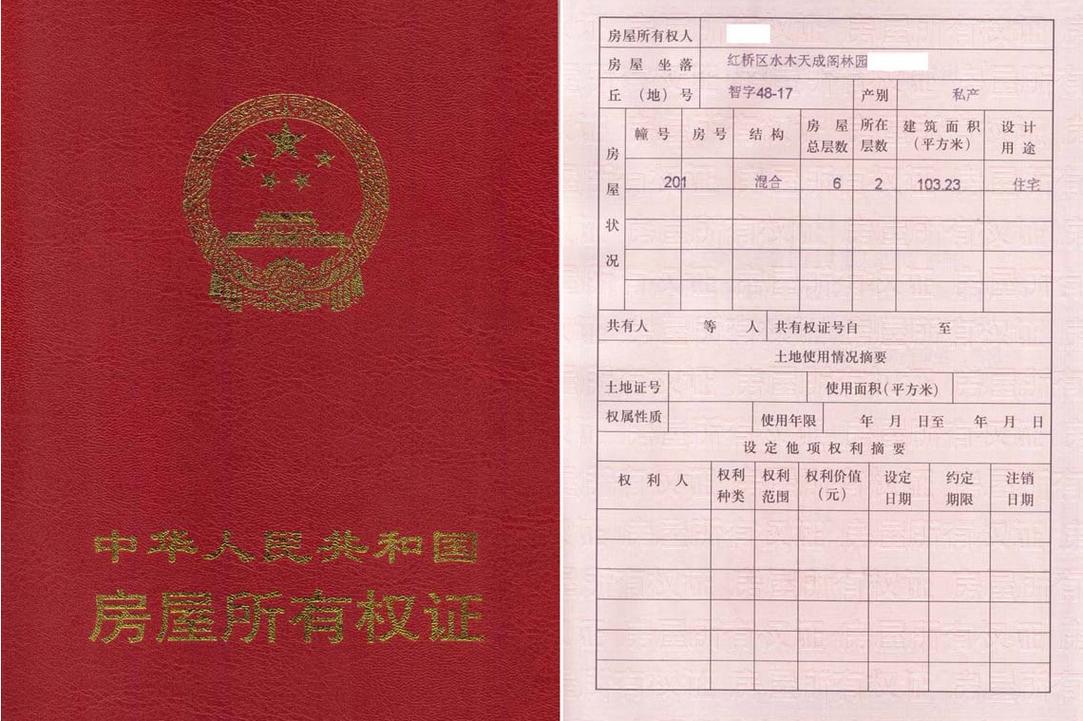 中华人民共和国
房屋所有权证
房屋所有权人
房屋坐落 红桥区水木天成阁林园
丘（地）号 智字48-17 产别 私产
房屋状况
幢号 房号 结构 房屋总层数 所在层数 建筑面积（平方米） 设计用途
201 混合 6 2 103.23 住宅
共有人 等 人 共有权证号自 至
土地使用情况摘要
土地证号 使用面积(平方米)
权属性质 使用年限 年 月 日至 年 月 日
设定他项权利摘要
权利人 权利种类 权利范围 权利价值（元） 设定日期 约定期限 注销日期